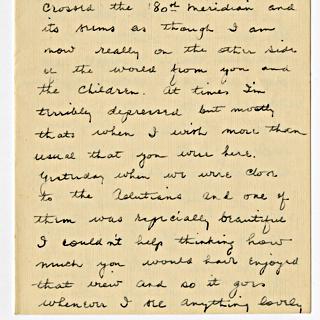 crossed the 180th meridian and
its seems as though I am
now really on the other side
of the world from you and
the children. At times I'm
terribly depressed but mostly
thats when I wish more than
usual that you were here.
Yesterday when we were close
to the Aleutians and one of
them was especially beautiful
I couldn't help thinking how
much you would have enjoyed
that view and so it goes
whenever I see anything lovely